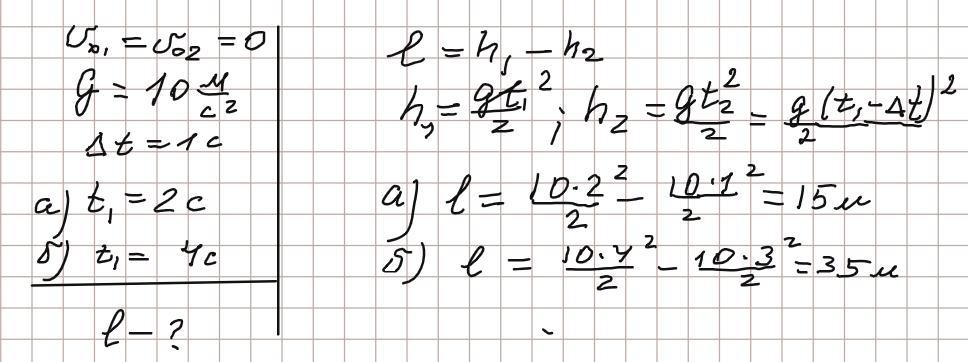 υ₀₁ = υ₀₂ = 0
g = 10 м/с²
Δt = 1 с
а) t₁ = 2 с
б) t₁ = 4 с
l - ?
l = h₁ - h₂
h₁ = gt₁²/2 ; h₂ = gt₂²/2 = g(t₁-Δt)²/2
а) l = 10·2²/2 - 10·1²/2 = 15 м
б) l = 10·4²/2 - 10·3²/2 = 35 м